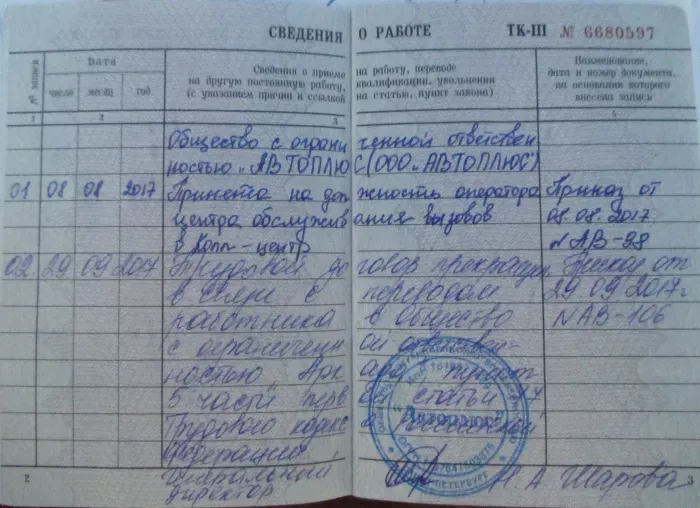 СВЕДЕНИЯ О РАБОТЕ ТК-III № 6680597
№ записи
Дата
число месяц год
Сведения о приеме на работу, переводе
на другую постоянную работу, квалификации, увольнении
(с указанием причин и ссылкой на статью, пункт закона)
Наименование,
дата и номер документа,
на основании которого
внесена запись
1 2 3 4
Общество с ограниченной ответствен
ностью „АВТОПЛЮС (ООО „АВТОПЛЮС")
01 08 08 2017 Принята на должность оператора Приказ от
центра обслуживания вызовов 08.08.2017
в Колл-центр №АВ-98
02 29 09 2017 Трудовой договор прекращен Приказ от
в связи с переводом 29.09.2017г
работника в Общество №АВ-106
с ограниченной ответствен-
ностью
5 части перв статьи
Трудового кодекс Российской
Федерации
Генеральный
директор Н А Шарова
"Автоплюс"
САНКТ-ПЕТЕРБУРГ
2 3